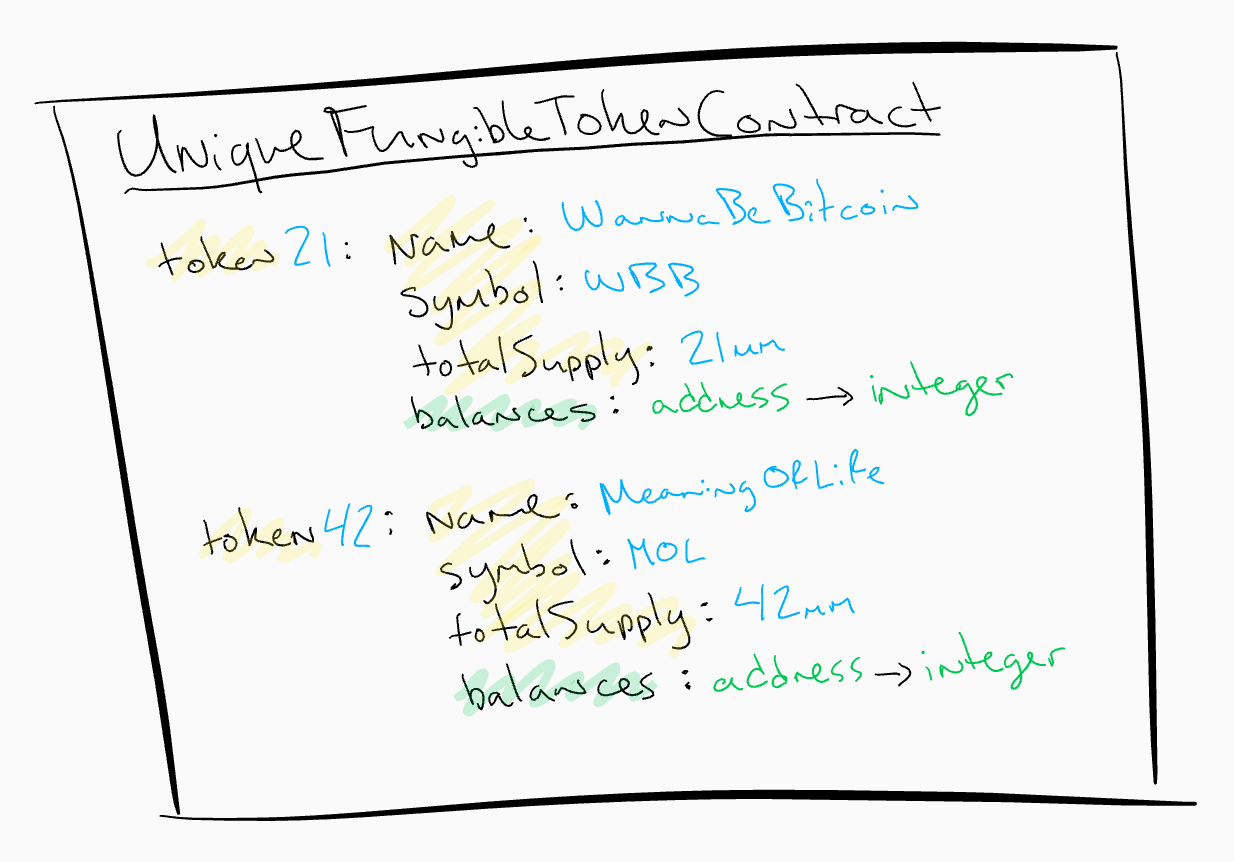 UniqueFungibleTokenContract
token21: Name: WannaBeBitcoin
symbol: WBB
totalSupply: 21mm
balances: address → integer
token42: Name: MeaningOfLife
symbol: MOL
totalSupply: 42mm
balances: address → integer